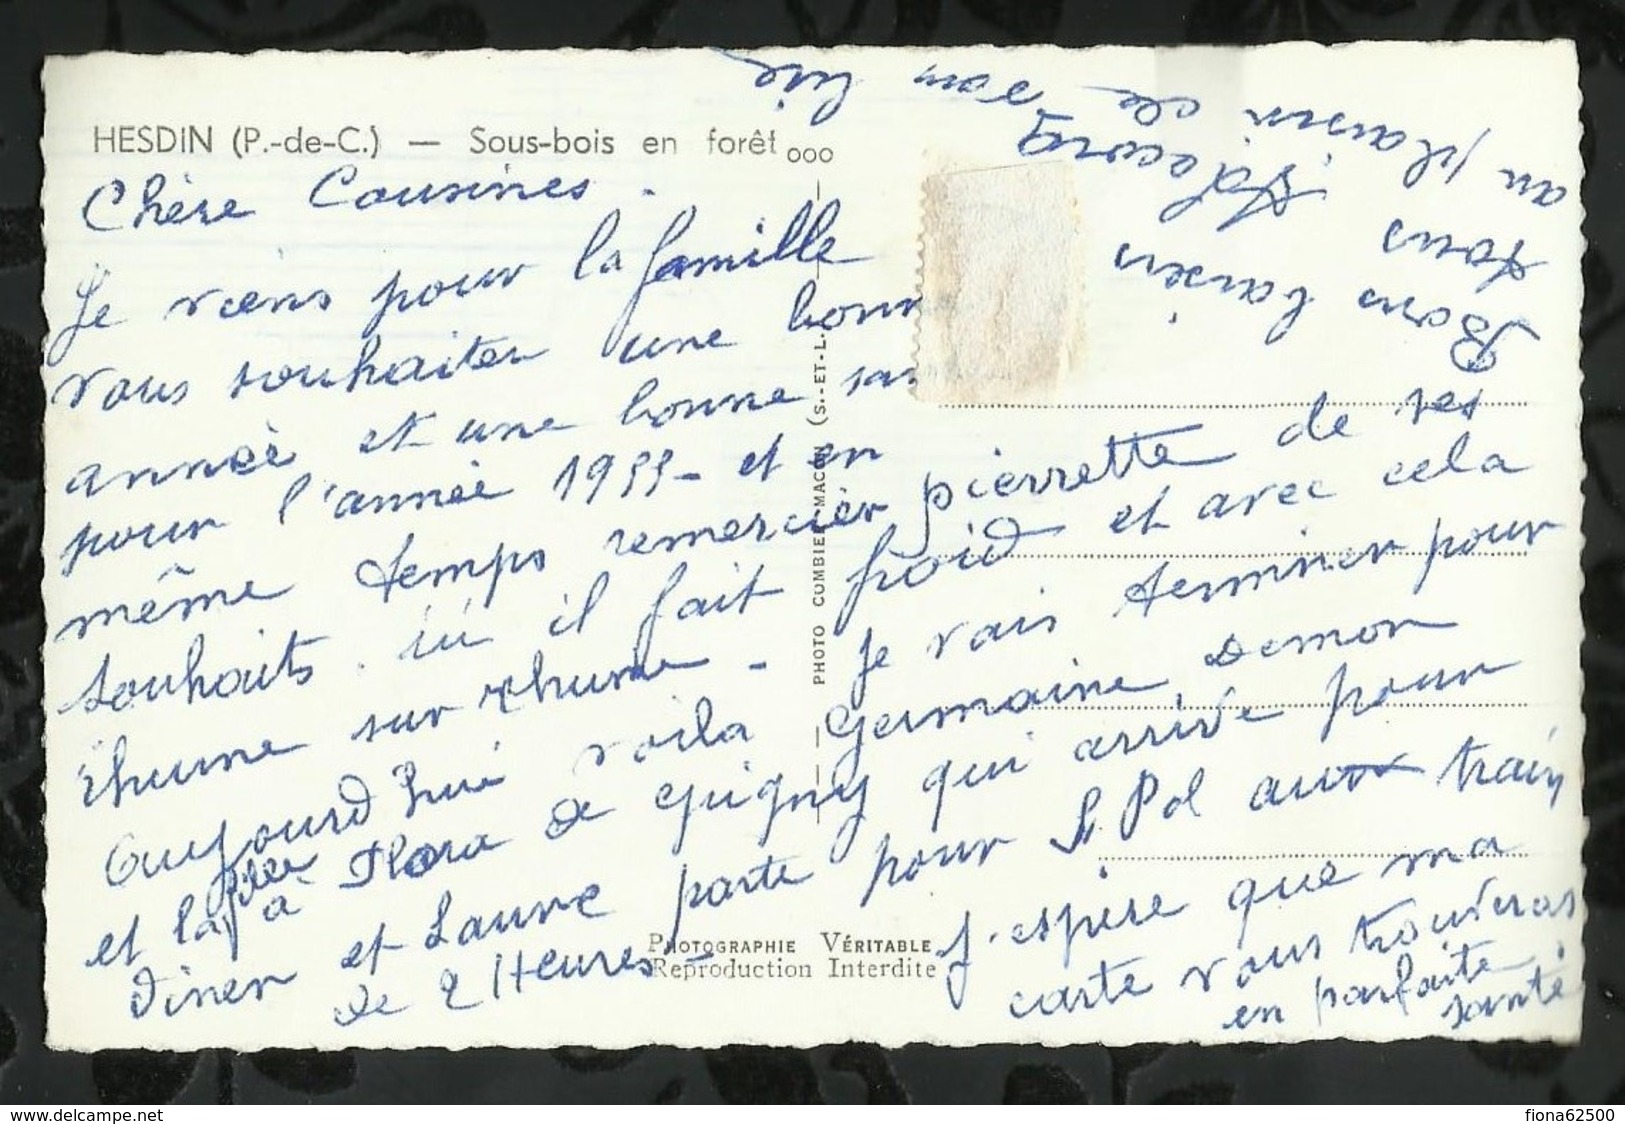 HESDIN (P.-de-C.) — Sous-bois en forêt
Chère Cousines.
Je viens pour la famille
vous souhaiter une bonn
année et une bonne san
pour l'année 1955- et en
même temps remercier pierrette de ses
souhaits. ici il fait froid et avec cela
rhume sur rhume - Je vais terminer pour
Aujourd'hui voila Germaine Demon
et la fille à Flora de Guigny qui arrive pour
diner et Laure parte pour St Pol aux train
de 2 Heures - J'espère que ma
carte vous trouveras
en parfaite
santé
Bons baisers
tous
au plaisir de vous lire
PHOTO COMBIER MACON (S.-ET-L.)
PHOTOGRAPHIE VÉRITABLE
Reproduction Interdite
www.delcampe.net
fiona62500